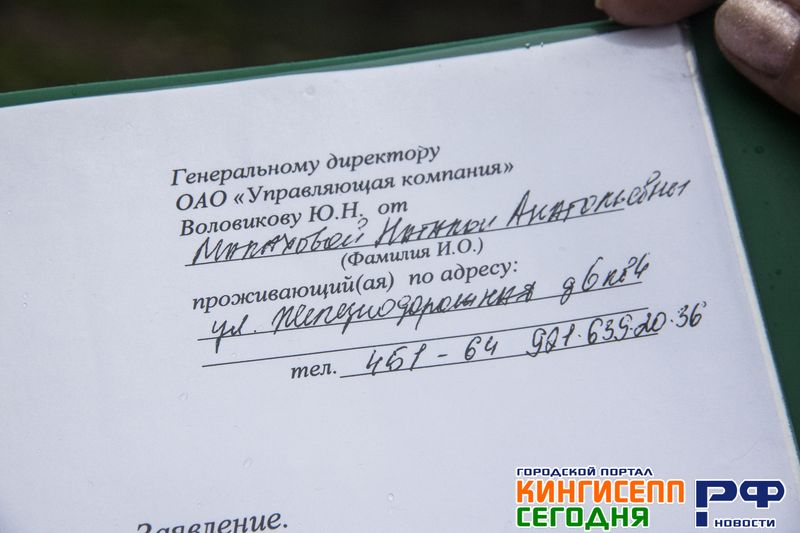 Генеральному директору
ОАО «Управляющая компания»
Воловикову Ю.Н. от
Малаховой Наталии Анатольевны
(Фамилия И.О.)
проживающий(ая) по адресу:
ул. Железнодорожная д6 кв4
тел. 451-64 921.639.20.36
Заявление.
ГОРОДСКОЙ ПОРТАЛ
КИНГИСЕПП
СЕГОДНЯ
.РФ
НОВОСТИ